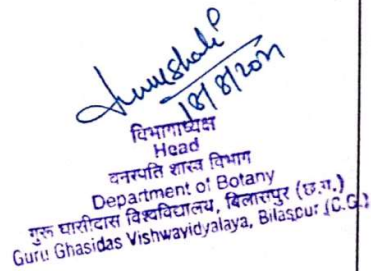 विभागाध्यक्ष
Head
वनस्पति शास्त्र विभाग
Department of Botany
गुरू घासीदास विश्वविद्यालय, बिलासपुर (छ.ग.)
Guru Ghasidas Vishwavidyalaya, Bilaspur (C.G.)